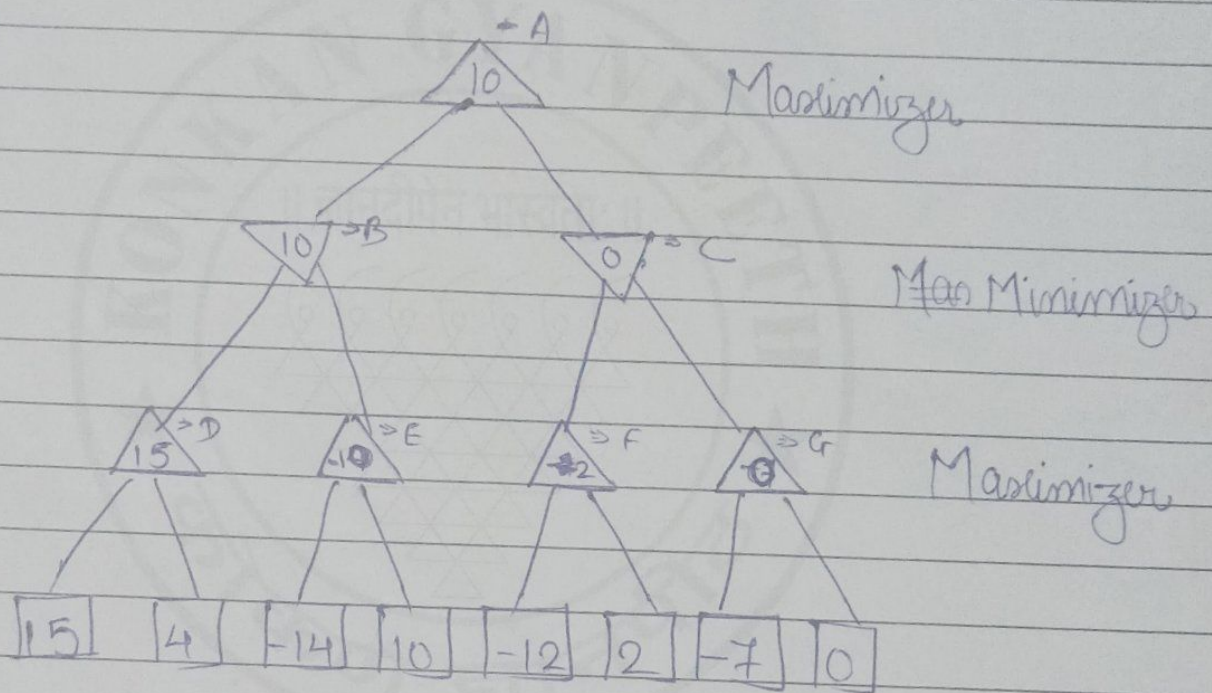 → A
10
Maximizer
10 ⇒ B
0 ⇒ C
Minimizer
15 ⇒ D
⇒ E
2 ⇒ F
⇒ G
Maximizer
15 4 -14 10 -12 2 -7 0